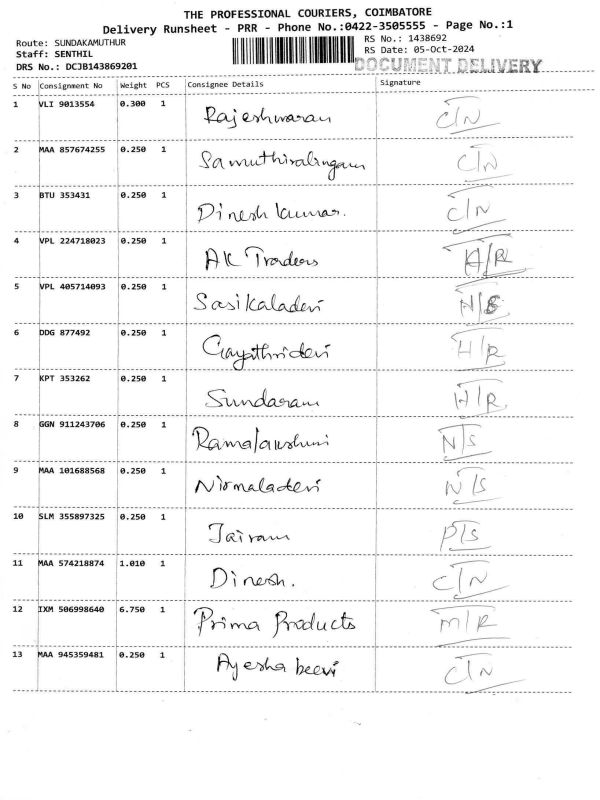 THE PROFESSIONAL COURIERS, COIMBATORE
Delivery Runsheet - PRR - Phone No.:0422-3505555 - Page No.:1
Route: SUNDAKAMUTHUR
Staff: SENTHIL
DRS No.: DCJB143869201
RS No.: 1438692
RS Date: 05-Oct-2024
DOCUMENT DELIVERY
S No Consignment No Weight PCS Consignee Details Signature
1 VLI 9013554 0.300 1 Rajeshwaran C/N
2 MAA 857674255 0.250 1 Samuthiralingam C/N
3 BTU 353431 0.250 1 Dinesh kumar. C/N
4 VPL 224718023 0.250 1 AK Traders H/R
5 VPL 405714093 0.250 1 Sasikaladevi H/S
6 DDG 877492 0.250 1 Gayathridevi H/R
7 KPT 353262 0.250 1 Sundaram H/R
8 GGN 911243706 0.250 1 Ramalakshmi N/S
9 MAA 101688568 0.250 1 Nirmaladevi N/S
10 SLM 355897325 0.250 1 Jairam P/S
11 MAA 574218874 1.010 1 Dinesh. C/N
12 IXM 506998640 6.750 1 Prima Products M/R
13 MAA 945359481 0.250 1 Ayesha beevi C/N